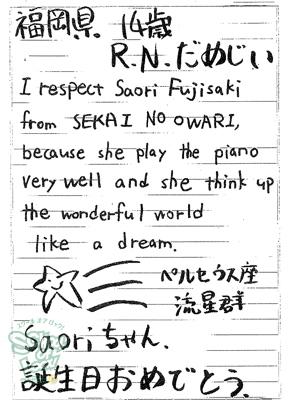 福岡県 14歳
R.N.だめじい
I respect Saori Fujisaki
from SEKAI NO OWARI,
because she play the piano
very well and she think up
the wonderful world
like a dream.
ペルセウス座
流星群
Saoriちゃん.
誕生日おめでとう.